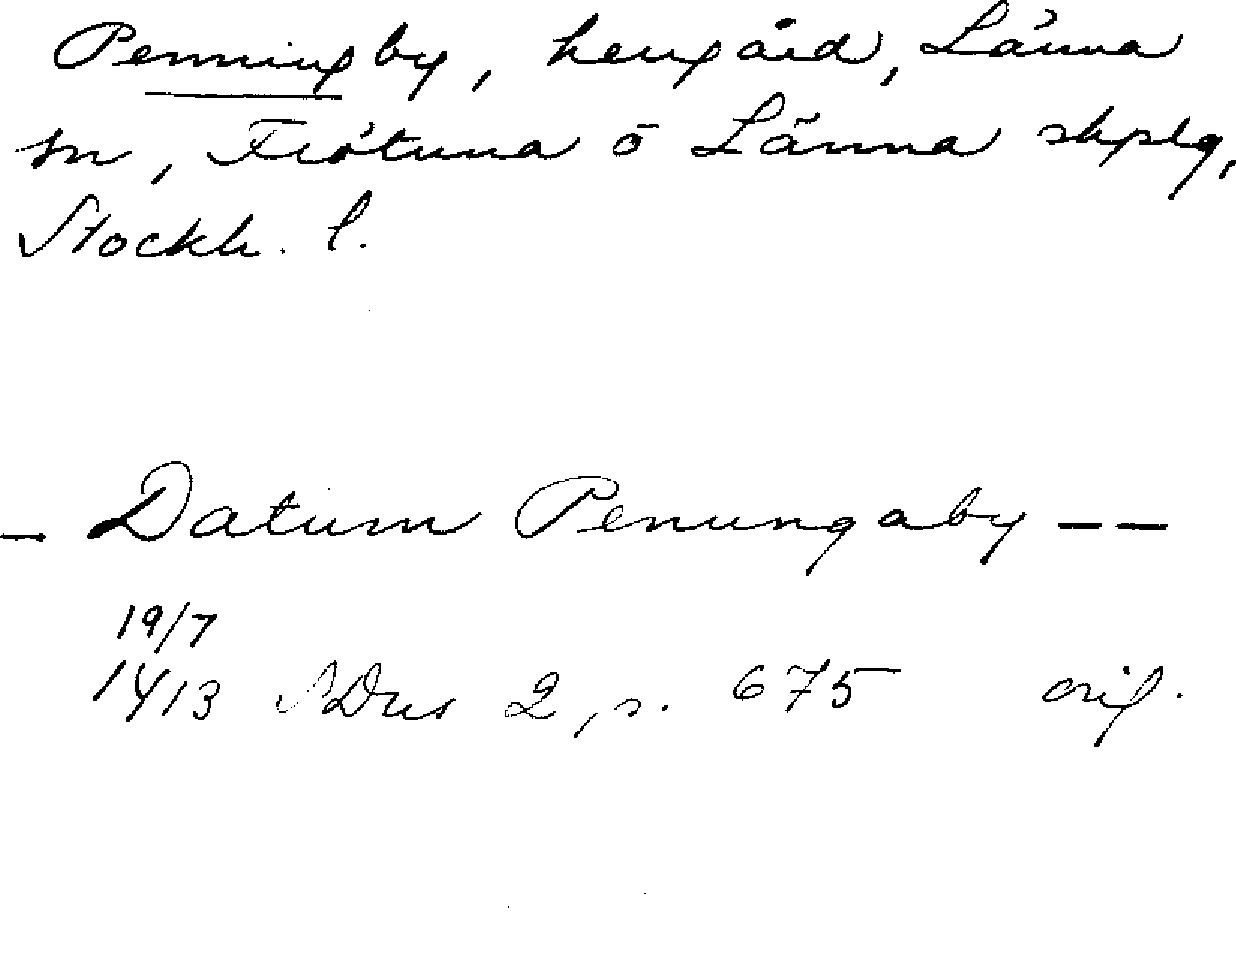 Penningby, herrgård, Länna
sn, Frötuna o Länna skplg,
Stockh. l.
– Datum Penungaby – –
19/7
1413 SDns 2, s. 675 orig.